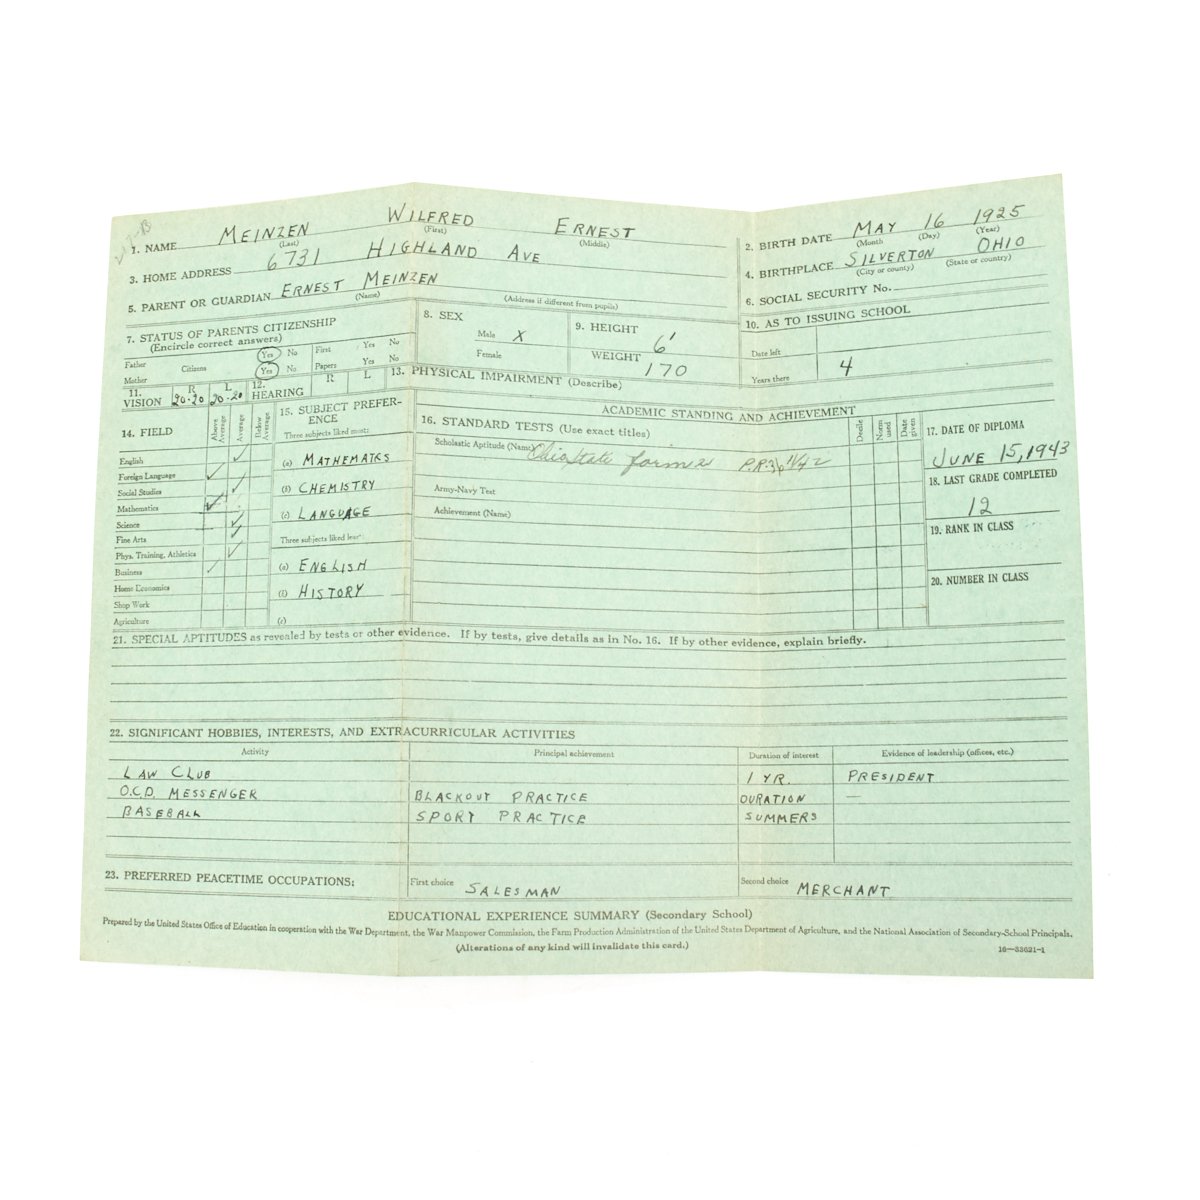 1. NAME MEINZEN WILFRED ERNEST
(Last) (First) (Middle)
2. BIRTH DATE MAY 16 1925
(Month (Day) (Year)
3. HOME ADDRESS 6731 HIGHLAND AVE
4. BIRTHPLACE SILVERTON OHIO
(City or county) (State or country)
5. PARENT OR GUARDIAN ERNEST MEINZEN
(Name) (Address if different from pupils)
6. SOCIAL SECURITY No.
7. STATUS OF PARENTS CITIZENSHIP
(Encircle correct answers)
Father Citizens Yes No First Yes No
Mother Yes No Papers Yes No
8. SEX
Male X
Female
9. HEIGHT 6'
WEIGHT 170
10. AS TO ISSUING SCHOOL
Date left
Years there 4
11. VISION R 20-20 L 20-20
12. HEARING R L
13. PHYSICAL IMPAIRMENT (Describe)
14. FIELD Above Average Average Below Average
English
Foreign Language
Social Studies
Mathematics
Science
Fine Arts
Phys. Training, Athletics
Business
Home Economics
Shop Work
Agriculture
15. SUBJECT PREFER-
ENCE
Three subjects liked most:
(a) MATHEMATKS
(b) CHEMISTRY
(c) LANGUAGE
Three subjects liked least
(a) ENGLISH
(b) HISTORY
(c)
ACADEMIC STANDING AND ACHIEVEMENT
16. STANDARD TESTS (Use exact titles) Decile Norm used Date given
Scholastic Aptitude (Name) Ohio State form 2 P.R.
Army-Navy Test
Achievement (Name)
17. DATE OF DIPLOMA
JUNE 15, 1943
18. LAST GRADE COMPLETED
12
19. RANK IN CLASS
20. NUMBER IN CLASS
21. SPECIAL APTITUDES as revealed by tests or other evidence. If by tests, give details as in No. 16. If by other evidence, explain briefly.
22. SIGNIFICANT HOBBIES, INTERESTS, AND EXTRACURRICULAR ACTIVITIES
Activity Principal achievement Duration of interest Evidence of leadership (offices, etc.)
LAW CLUB 1 YR. PRESIDENT
O.C.D. MESSENGER BLACKOUT PRACTICE DURATION —
BASEBALL SPORT PRACTICE SUMMERS
23. PREFERRED PEACETIME OCCUPATIONS: First choice SALESMAN Second choice MERCHANT
EDUCATIONAL EXPERIENCE SUMMARY (Secondary School)
Prepared by the United States Office of Education in cooperation with the War Department, the War Manpower Commission, the Farm Production Administration of the United States Department of Agriculture, and the National Association of Secondary-School Principals.
(Alterations of any kind will invalidate this card.)
16—33621-1